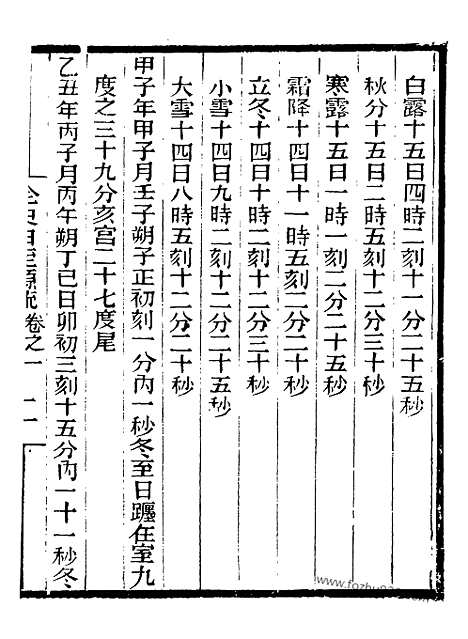 白露十五日四時二刻十一分二十五秒
秋分十五日二時五刻十二分三十秒
寒露十五日一時一刻二分二十五秒
霜降十四日十一時五刻二分二十秒
立冬十四日十時二刻十二分三十秒
小雪十四日九時二刻十二分二十五秒
大雪十四日八時五刻十二分二十秒
甲子年甲子月壬子朔子正初刻一分內一秒冬至日躔在室九
度之三十九分亥宮二十七度尾
乙丑年丙子月丙午朔丁巳日卯初三刻十五分內一十一秒冬
全史日至源流卷之一 二